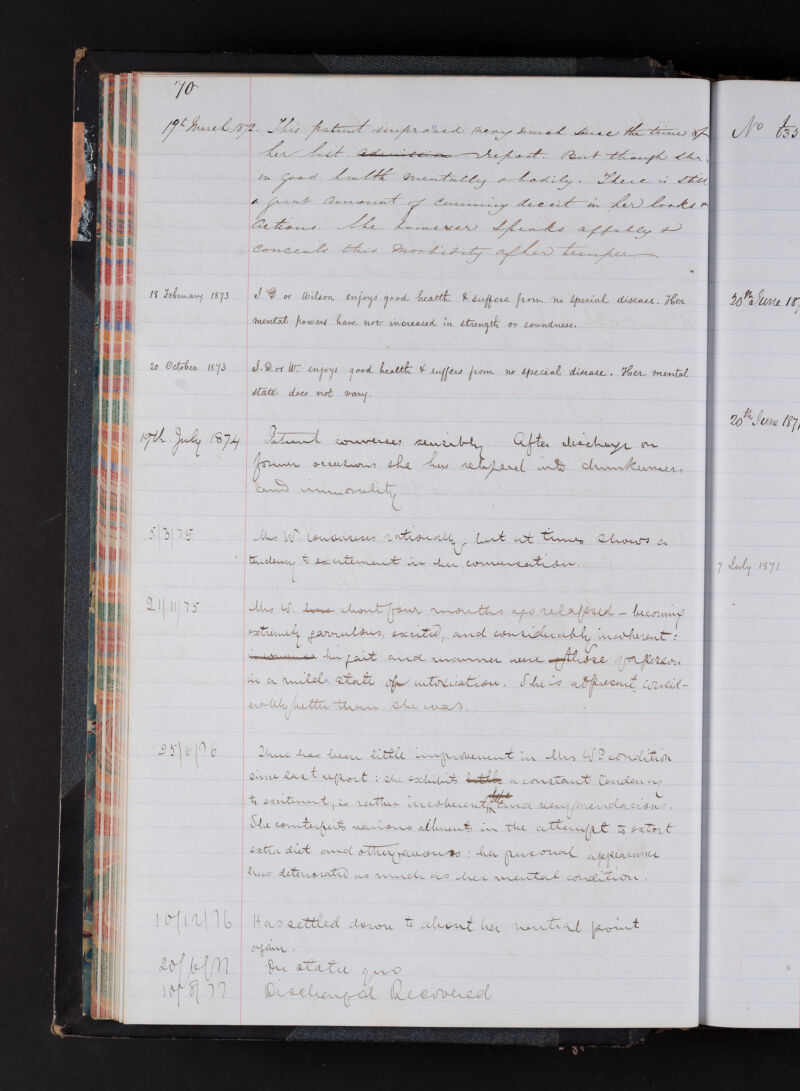 70
19th March 1872. This patient improved very much since the time of
her last admission report. But though she is
in good health mentally & bodily. There is still
a great amount of cunning deceit in her looks &
actions. She however speaks affably &
conceals this morbidity of her temper
18 February 1873 J D or Wilson enjoys good health & suffers from no special disease. Her
mental powers have not increased in strength or soundness.
20 October 1873 J. D. or W. enjoys good health & suffers from no special disease. Her mental
state does not vary.
19th July 1874 Patient converses sensibly After discharge on
former occasions she has relapsed into drunkenness
and immorality
5/3/75 Mrs W. converses rationally, but at times shows a
tendency to excitement in her conversation.
21/11/75 Mrs W. about four months ago relapsed - becoming
extremely garrulous, excited, and considerably incoherent:
her gait and manner were those of a person
in a mild state of intoxication. She is at present consid-
erably better than she was.
25/6/76 There has been little improvement in Mrs W's condition
since last report: she exhibits a constant tendency
to excitement, is rather incoherent, and very mendacious.
She counterfeits various ailments in the attempt to extort
extra diet and other favours: her personal appearance
has deteriorated as much as her mental condition.
10/12/76 Has settled down to about her neutral point
again.
20/6/77 In statu quo
10/8/77 Discharged Recovered
No 1/35
30th June 187
20th June 1871
7 July 1871